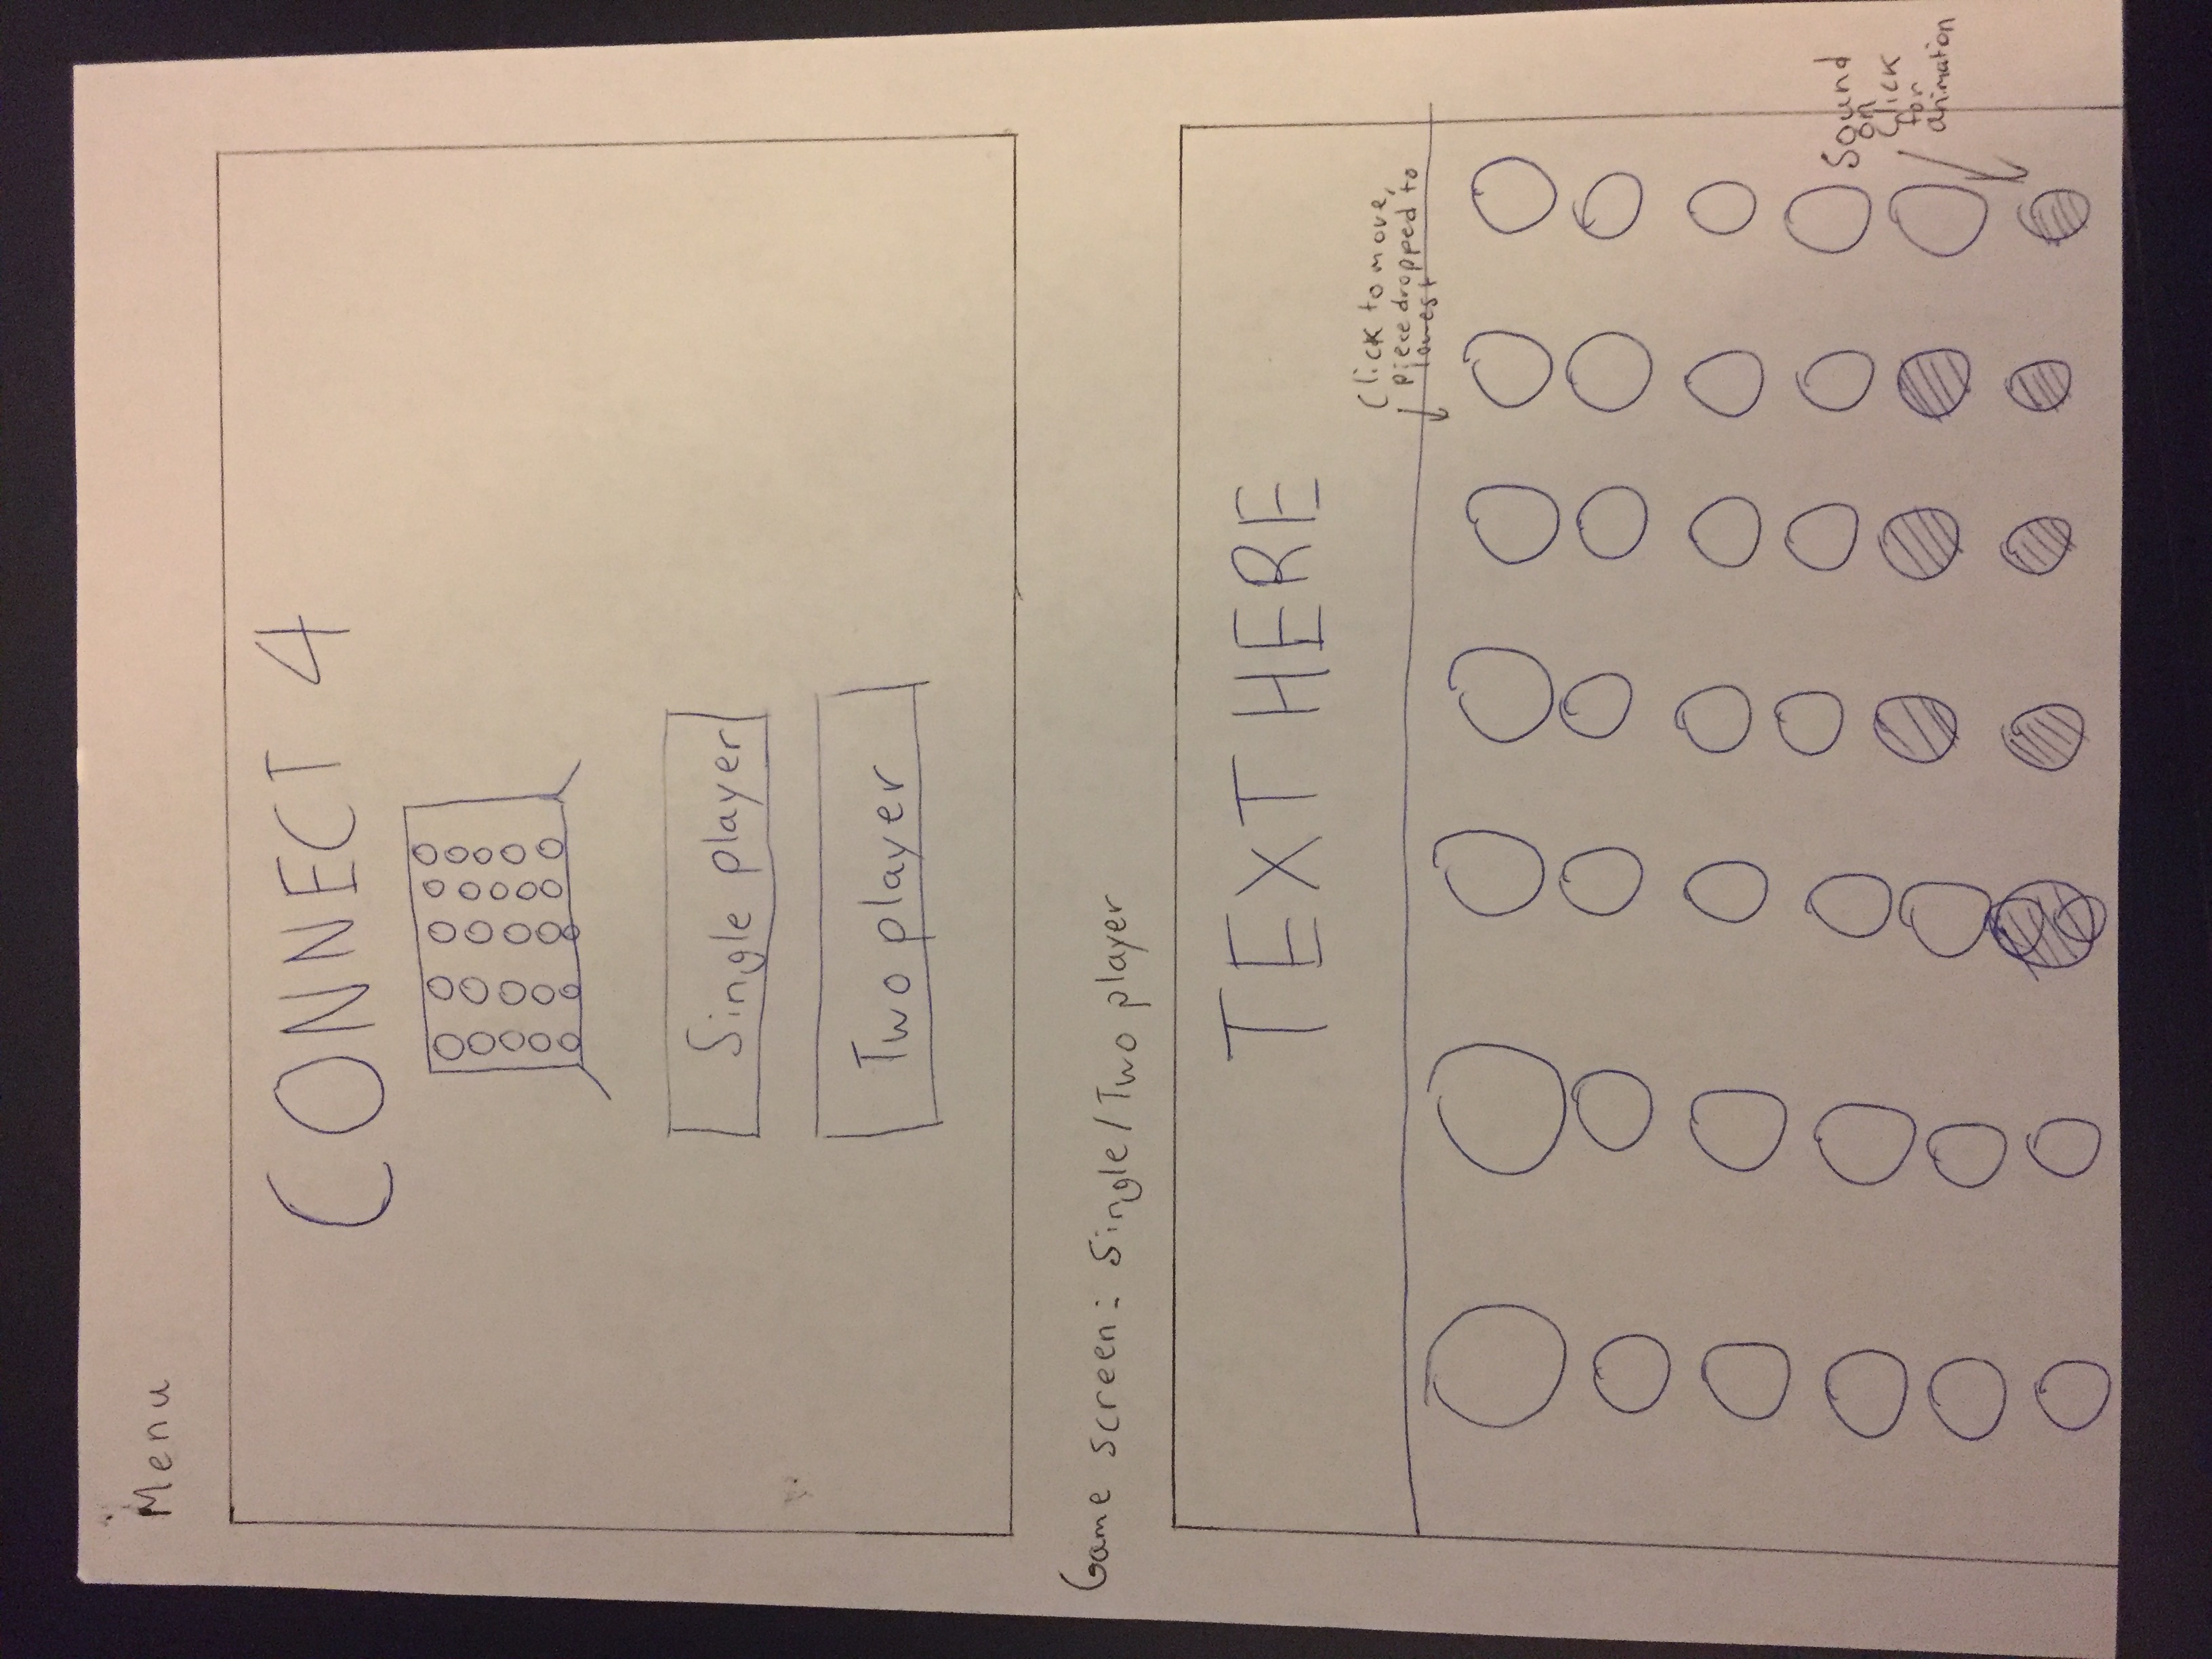 Menu
CONNECT 4
Single player
Two player
Game screen: Single/Two player
TEXT HERE
Click to move,
piece dropped to
lowest
Sound
on
click
for
animation